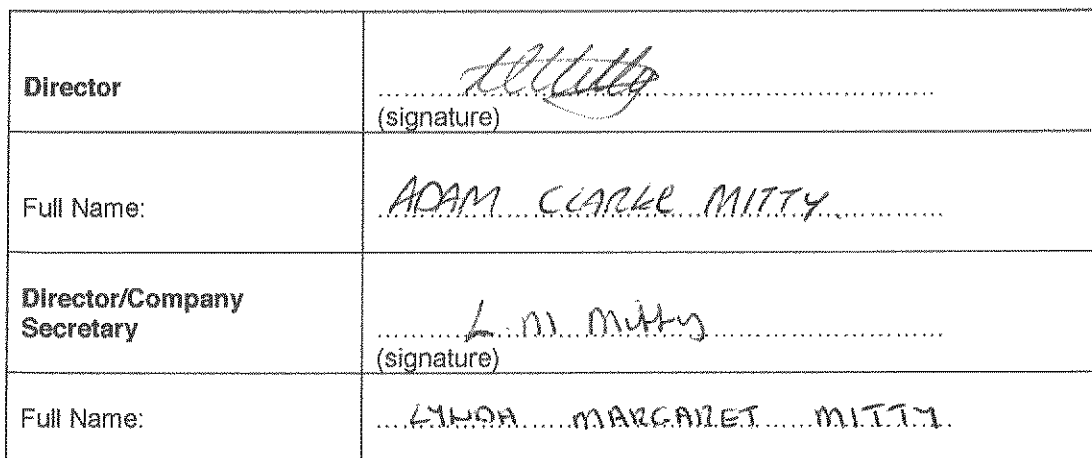 Director
(signature)
Full Name:
ADAM CLARKE MITTY.
Director/Company
Secretary
L. M Mitty
(signature)
Full Name:
LYNDA MARGARET MITTY